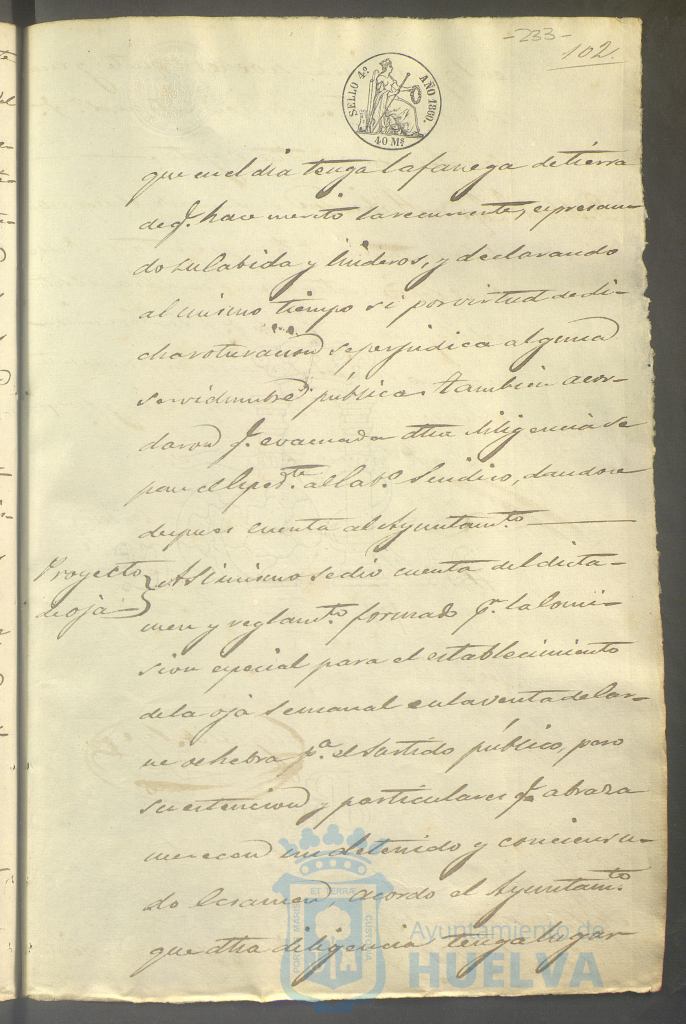 -233-
102.
SELLO 4º AÑO 1860.
40 Mˢ
que en el dia tenga la fanega de tierra
de q.ᵉ hace merito la recurrente, espresan-
do su cabida y linderos, y declarando
al mismo tiempo si por virtud de di-
cha roturacion se perjudica alguna
servidumbre pública. Tambien acor-
daron q.ᵉ evacuada dha diligencia se
pase el Esped.ᵗᵉ al Cab.º Sindico, dandose
despues cuenta al Ayuntam.ᵗᵒ
Proyecto
de oja
Asimismo se dio cuenta del dicta-
men y reglam.ᵗᵒ formado p.ʳ la Comi-
sion especial para el establecimiento
de la oja semanal en la venta de Car-
ne de hebra p.ᵃ el surtido público, pero
su estencion y particulares q.ᵉ abraza
merecen un detenido y concienzu-
do ecsamen, acordo el Ayuntam.ᵗᵒ
que dha diligencia tenga lugar
PORTUS MARIS ET TERRAE CUSTODIA
Ayuntamiento de
HUELVA